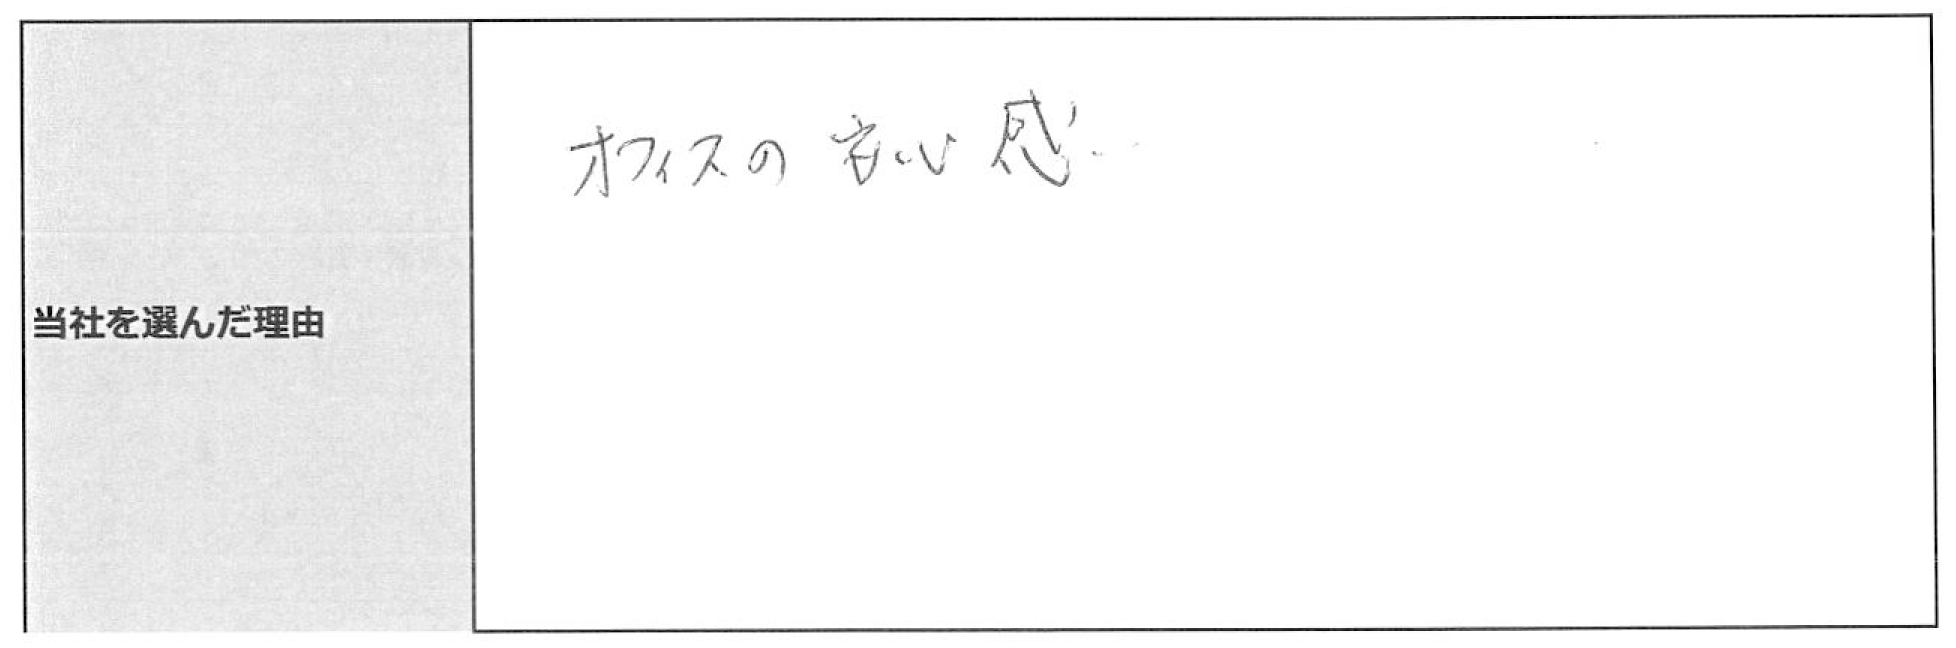 オフィスの安心感
当社を選んだ理由